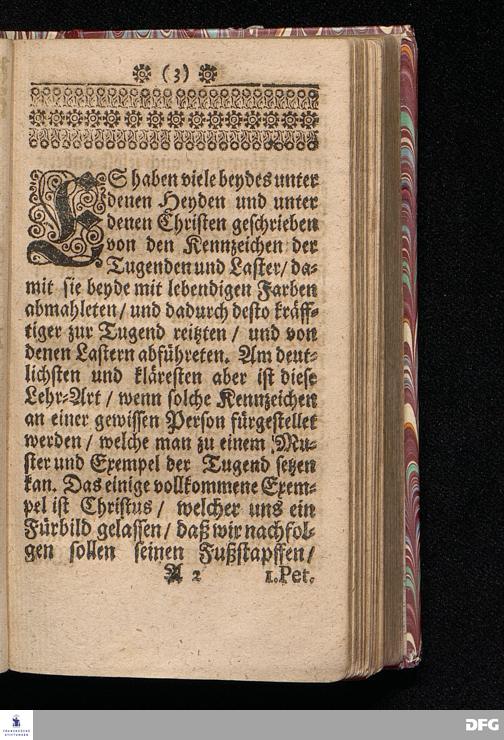 (3)
ES haben viele beydes unter
denen Heyden und unter
denen Christen geschrieben
von den Kennzeichen der
Tugenden und Laster/ da-
mit sie beyde mit lebendigen Farben
abmahleten/ und dadurch desto kräff-
tiger zur Tugend reitzten/ und von
denen Lastern abführeten. Am deut-
lichsten und kläresten aber ist diese
Lehr-Art/ wenn solche Kennzeichen
an einer gewissen Person fürgestellet
werden/ welche man zu einem Mu-
ster und Exempel der Tugend setzen
kan. Das einige vollkommene Exem-
pel ist Christus/ welcher uns ein
Fürbild gelassen/ daß wir nachfol-
gen sollen seinen Fußstapffen/
A 2 1. Pet.
FRANCKESCHE
STIFTUNGEN
DFG